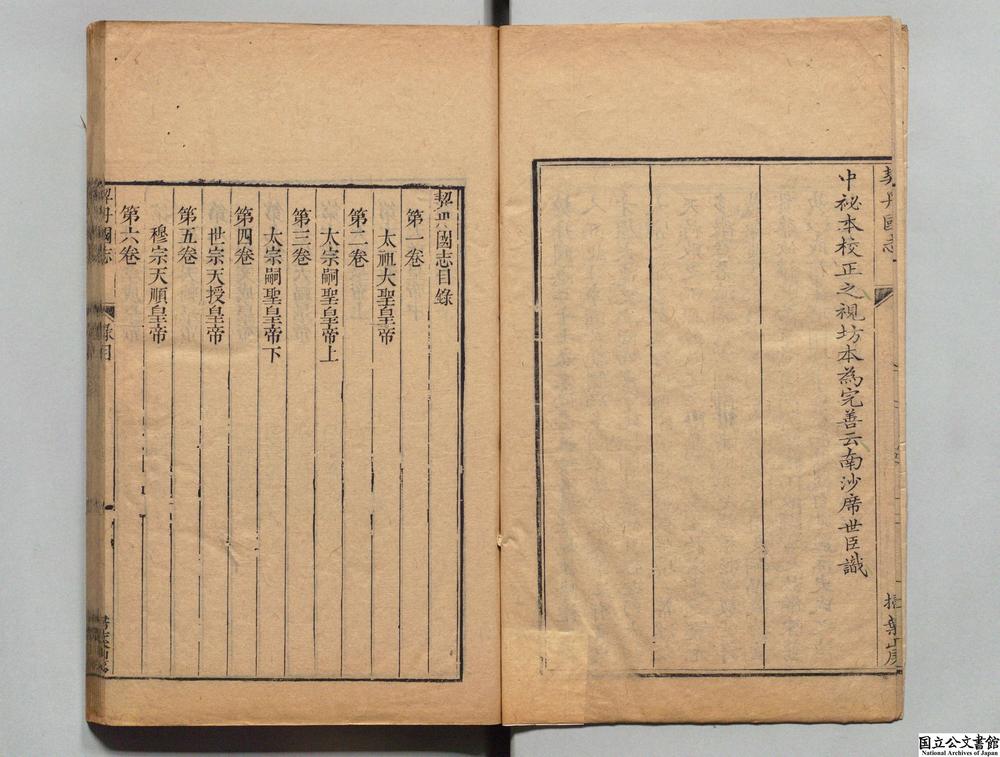 契丹國志
掃葉山房
中祕本校正之視坊本為完善云南沙席世臣識
契丹國志目錄
第一卷
太祖大聖皇帝
第二卷
太宗嗣聖皇帝上
第三卷
太宗嗣聖皇帝下
第四卷
世宗天授皇帝
第五卷
穆宗天順皇帝
第六卷
契丹國志
目
国立公文書館
National Archives of Japan